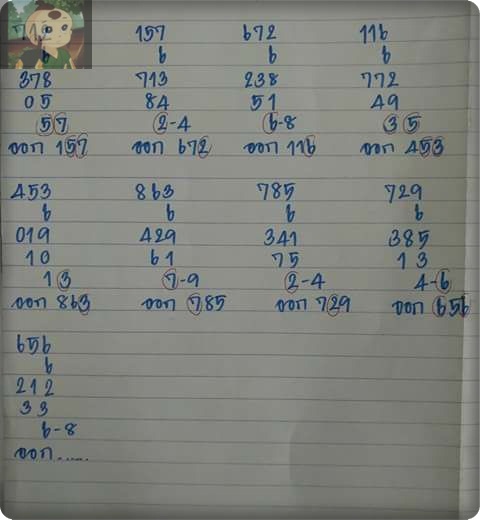 712 157 672 116
6 6 6 6
378 713 238 772
05 84 51 49
57 2-4 6-8 35
ออก 157 ออก 672 ออก 116 ออก 453
453 863 785 729
6 6 6 6
019 429 341 385
10 61 75 13
13 7-9 2-4 4-6
ออก 863 ออก 785 ออก 729 ออก 656
656
6
212
33
6-8
ออก......